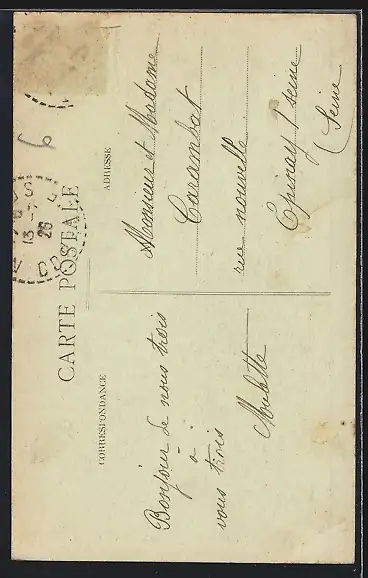 CARTE POSTALE
CORRESPONDANCE
ADRESSE
Bonjour de nous trois
à
vous trois
Moulette
Monsieur et Madame
Carambat
rue nouvelle
Epinay s/ seine
(Seine
13 - 7
26
6